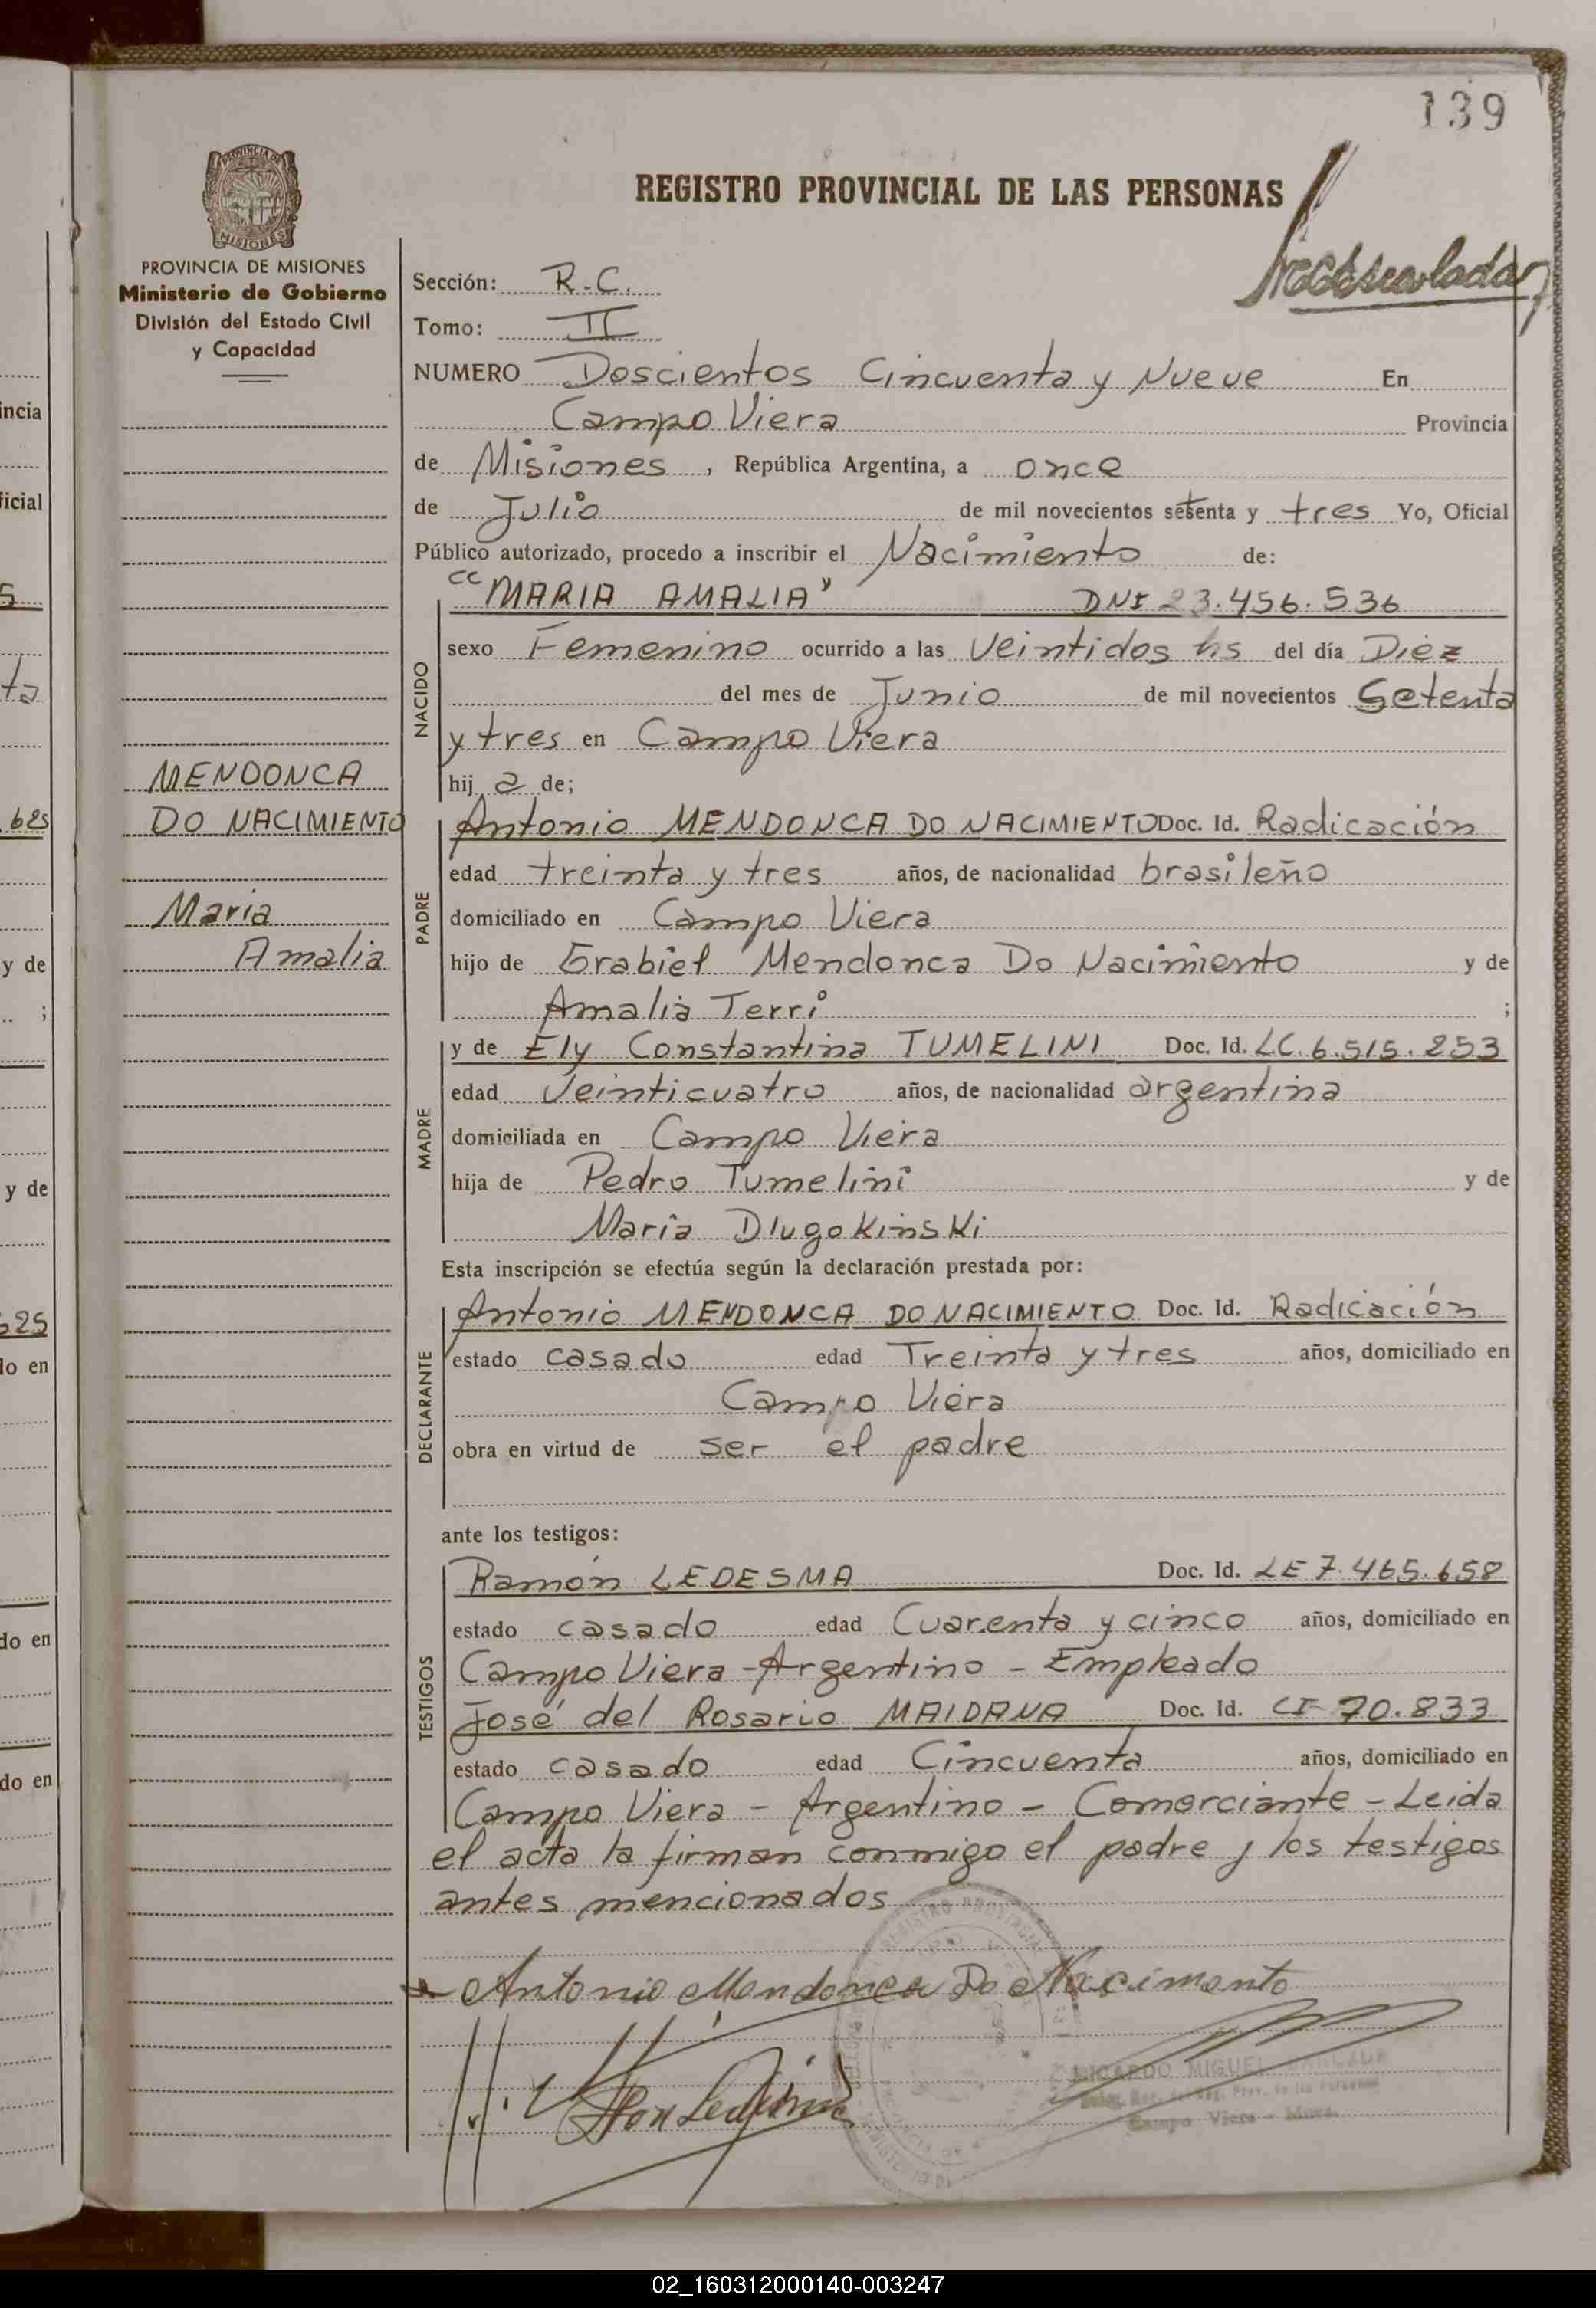 139
PROVINCIA DE
MISIONES
REGISTRO PROVINCIAL DE LAS PERSONAS
PROVINCIA DE MISIONES
Ministerio de Gobierno
División del Estado Civil
y Capacidad
Sección: R.C.
Tomo: II
NUMERO Doscientos Cincuenta y Nueve En
Campo Viera Provincia
de Misiones, República Argentina, a once
de Julio de mil novecientos setenta y tres Yo, Oficial
Público autorizado, procedo a inscribir el Nacimiento de:
"MARIA AMALIA" DNI 23.456.536
NACIDO
sexo Femenino ocurrido a las Veintidos hs del día Diez
del mes de Junio de mil novecientos Setenta
y tres en Campo Viera
hij a de;
MENDONCA
DO NACIMIENTO
Maria
Amalia
PADRE
Antonio MENDONCA DO NACIMIENTO Doc. Id. Radicación
edad treinta y tres años, de nacionalidad brasileño
domiciliado en Campo Viera
hijo de Grabiel Mendonca Do Nacimiento y de
Amalia Terri ;
MADRE
y de Ely Constantina TUMELINI Doc. Id. LC. 6.515.253
edad Veinticuatro años, de nacionalidad argentina
domiciliada en Campo Viera
hija de Pedro Tumelini y de
Maria Dlugokinski
Esta inscripción se efectúa según la declaración prestada por:
DECLARANTE
Antonio MENDONCA DO NACIMIENTO Doc. Id. Radicación
estado casado edad Treinta y tres años, domiciliado en
Campo Viera
obra en virtud de ser el padre
ante los testigos:
TESTIGOS
Ramón LEDESMA Doc. Id. LE 7.465.658
estado casado edad Cuarenta y cinco años, domiciliado en
Campo Viera - Argentino - Empleado
José del Rosario MAIDANA Doc. Id. CI 70.833
estado casado edad Cincuenta años, domiciliado en
Campo Viera - Argentino - Comerciante - Leida
el acta la firman conmigo el padre y los testigos
antes mencionados
Antonio Mendonca Do Nacimento
RICARDO MIGUEL
Campo Viera - Mnes.
incia
ficial
y de
;
y de
lo en
do en
do en
02_160312000140-003247